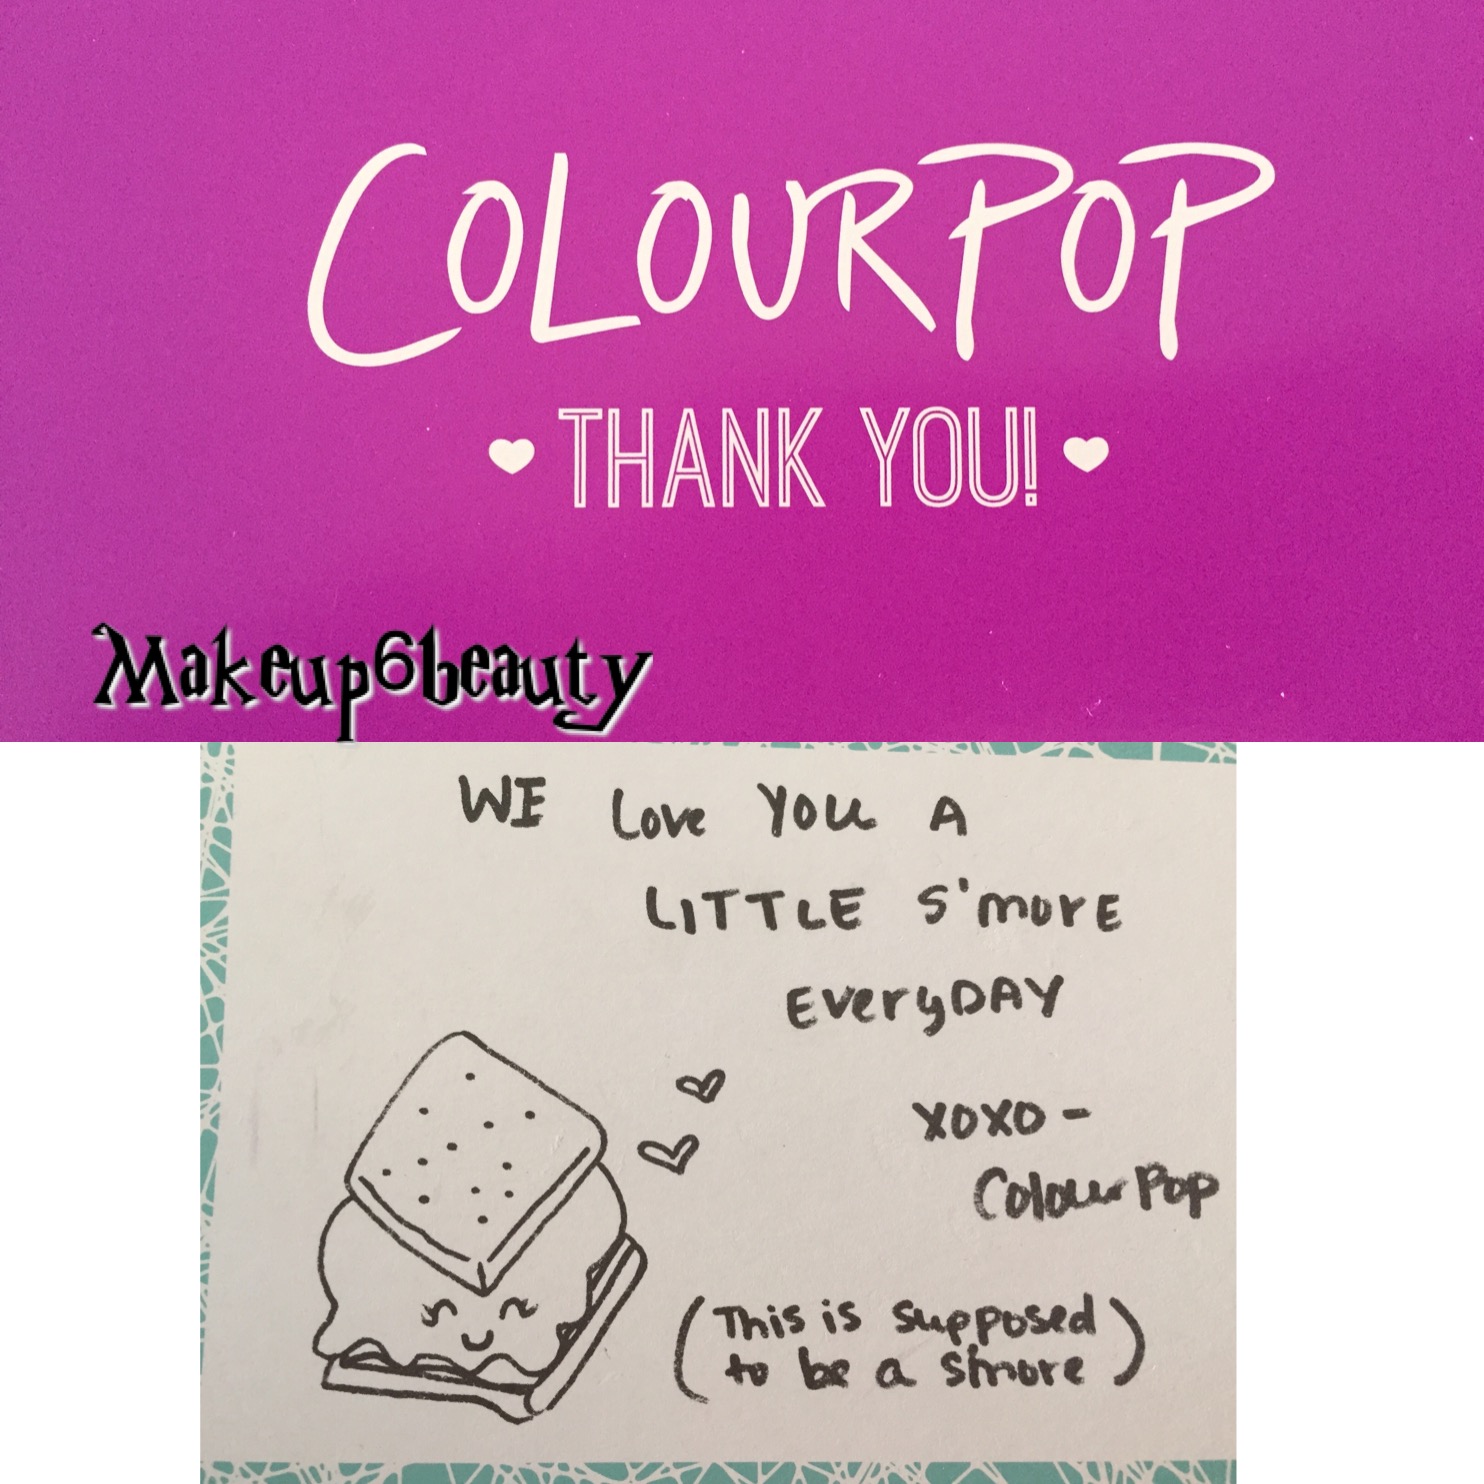 COLOURPOP
THANK YOU!
Makeup6beauty
WE Love You A
LITTLE S'morE
EveryDAY
XOXO -
ColourPop
(This is supposed
to be a s'more)